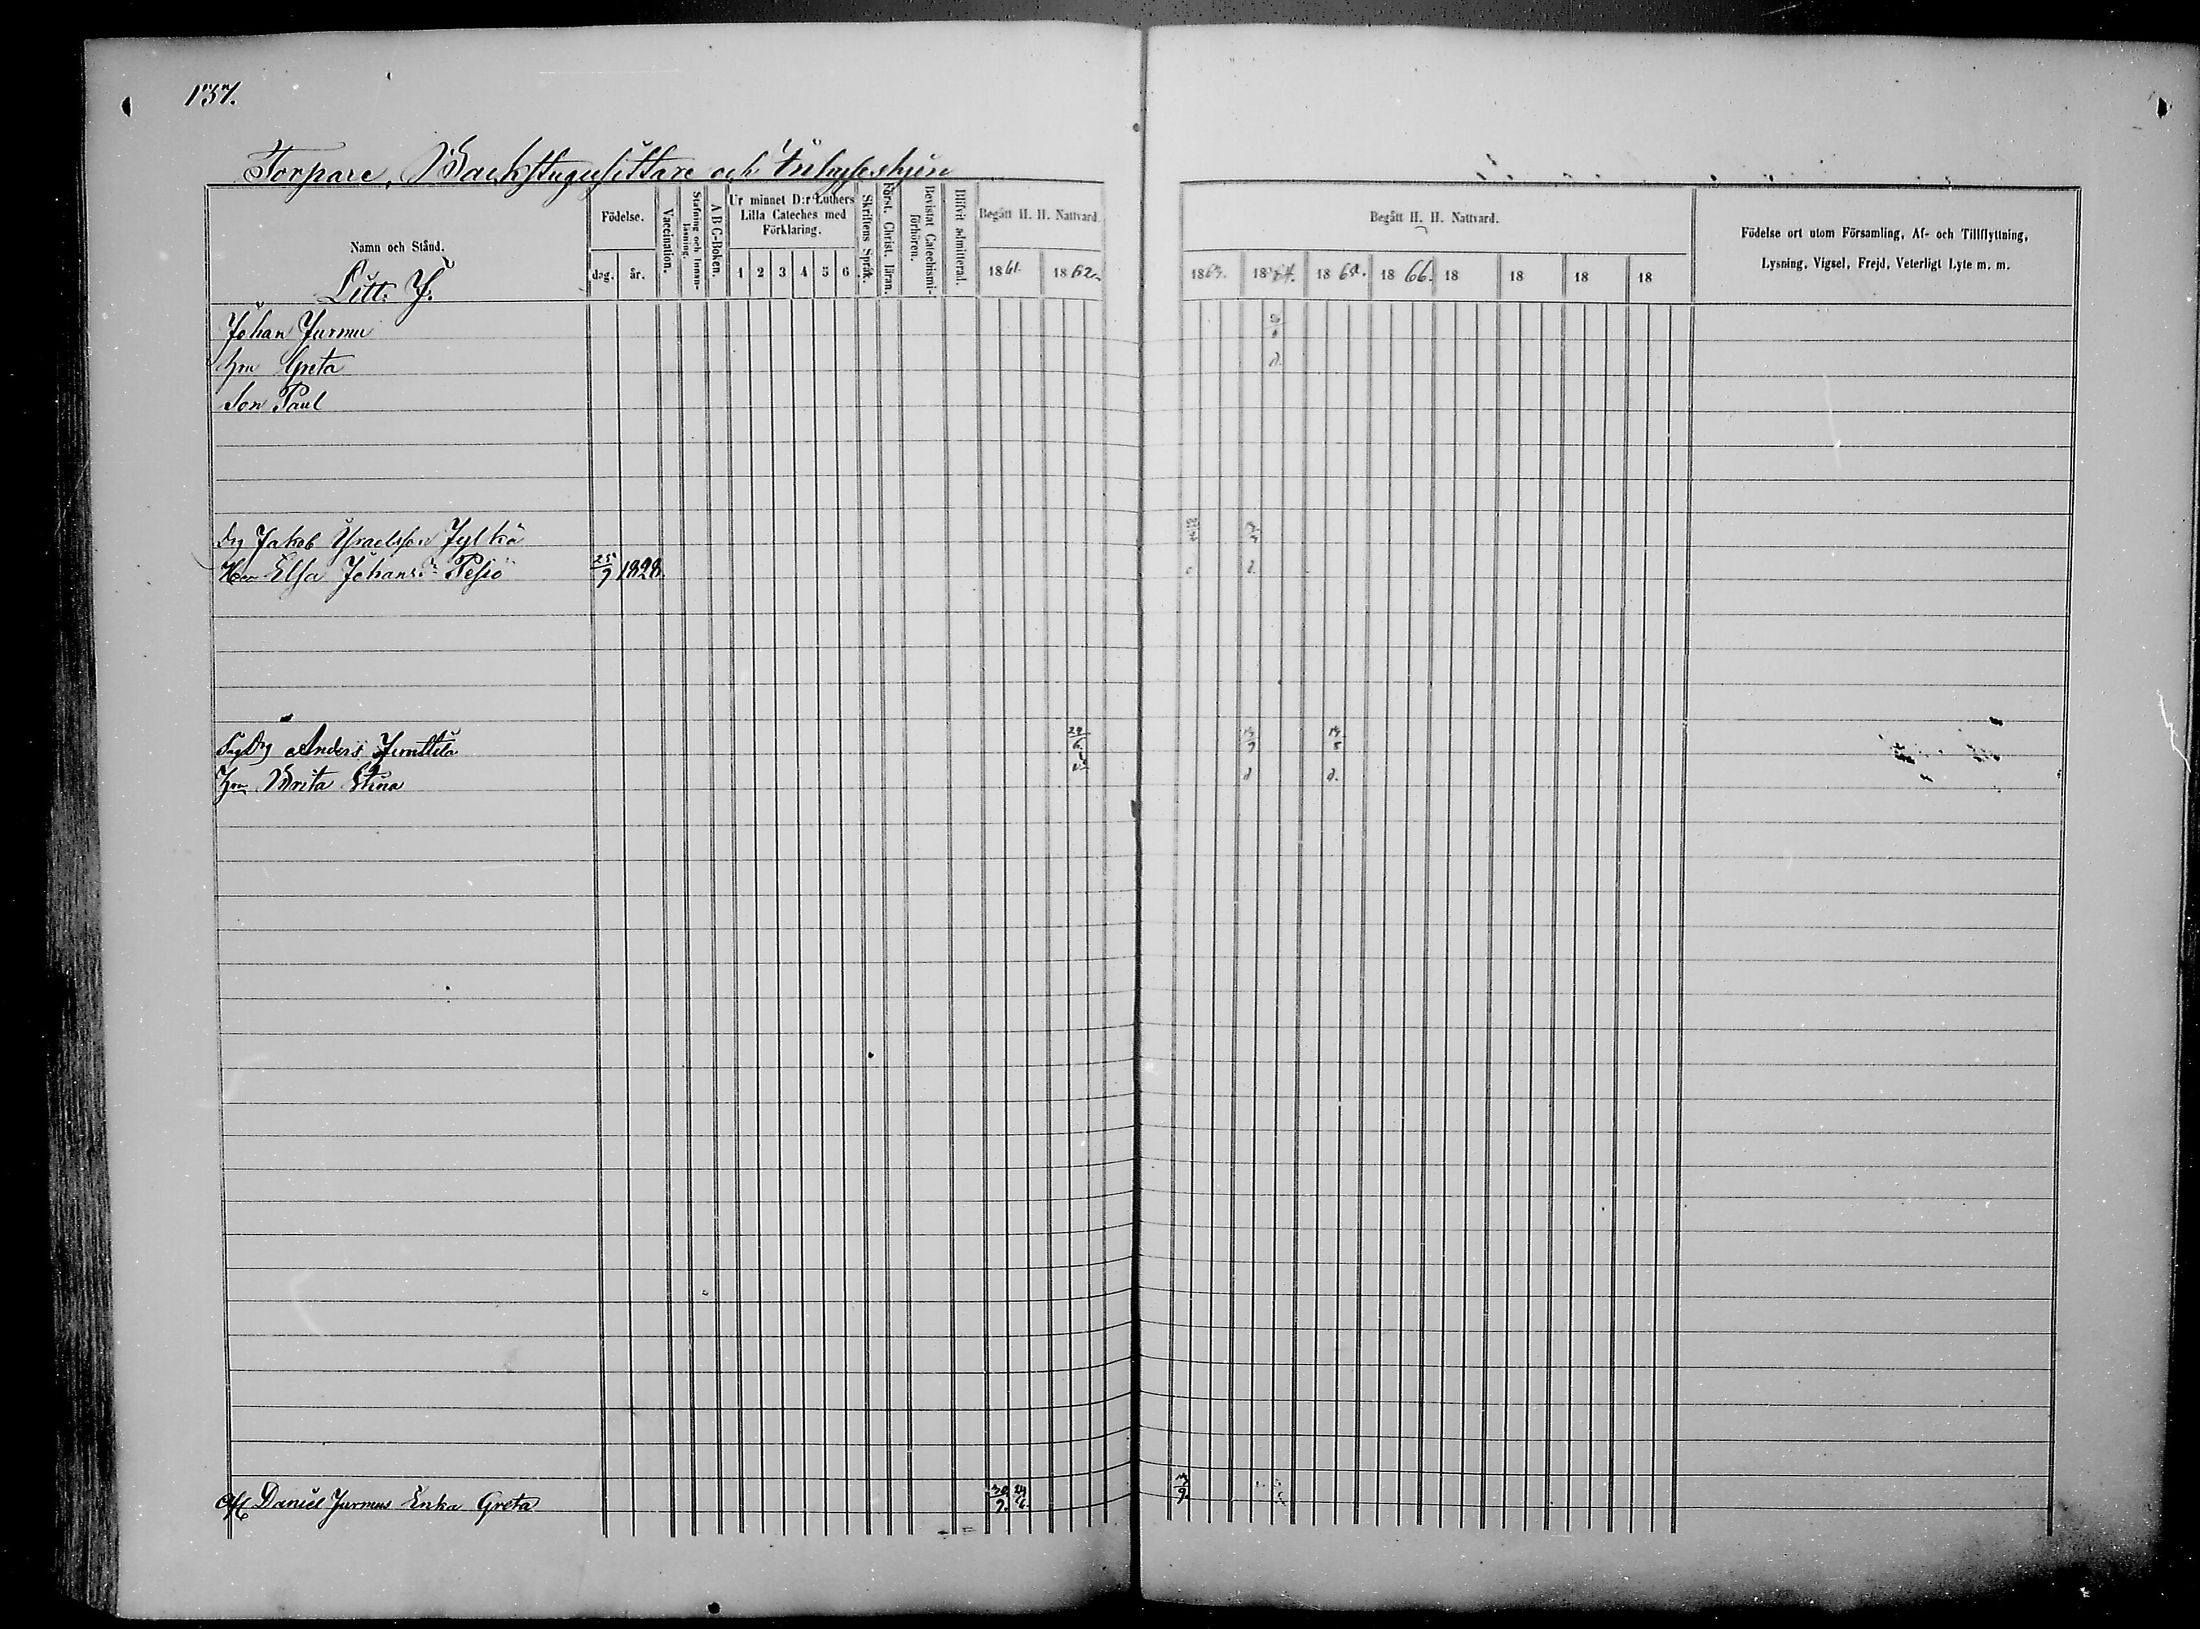 137.
Torpare, Backstugusittare och Inhyseshjon
Namn och Stånd.
Litt. J.
Födelse.
dag. år.
Vaccination.
Stafning och Innan-läsning.
A B C-Boken.
Ur minnet D:r Luthers Lilla Cateches med Förklaring.
1 2 3 4 5 6
Skriftens Språk.
Först. Christ. läran.
Bevistat Catechismi-förhören.
Blifvit admitterad.
Begått H. H. Nattvard.
1861. 1862.
Begått H. H. Nattvard.
1863. 1864. 1865. 1866. 18 18 18 18
Födelse ort utom Församling, Af- och Tillflyttning,
Lysning, Vigsel, Frejd, Veterligt Lyte m. m.
Johan Jurmu
Hu Greta
Son Paul
Dg Jakob Israelsson Jylkä
Hu Elsa Johansd. Pesiö 25/9 1828.
Anders Junttila 24/6 19/9 19/8
Hu Brita Stina d. d.
Afl. Daniel Jurmus Enka Greta 30/9. 24/6.